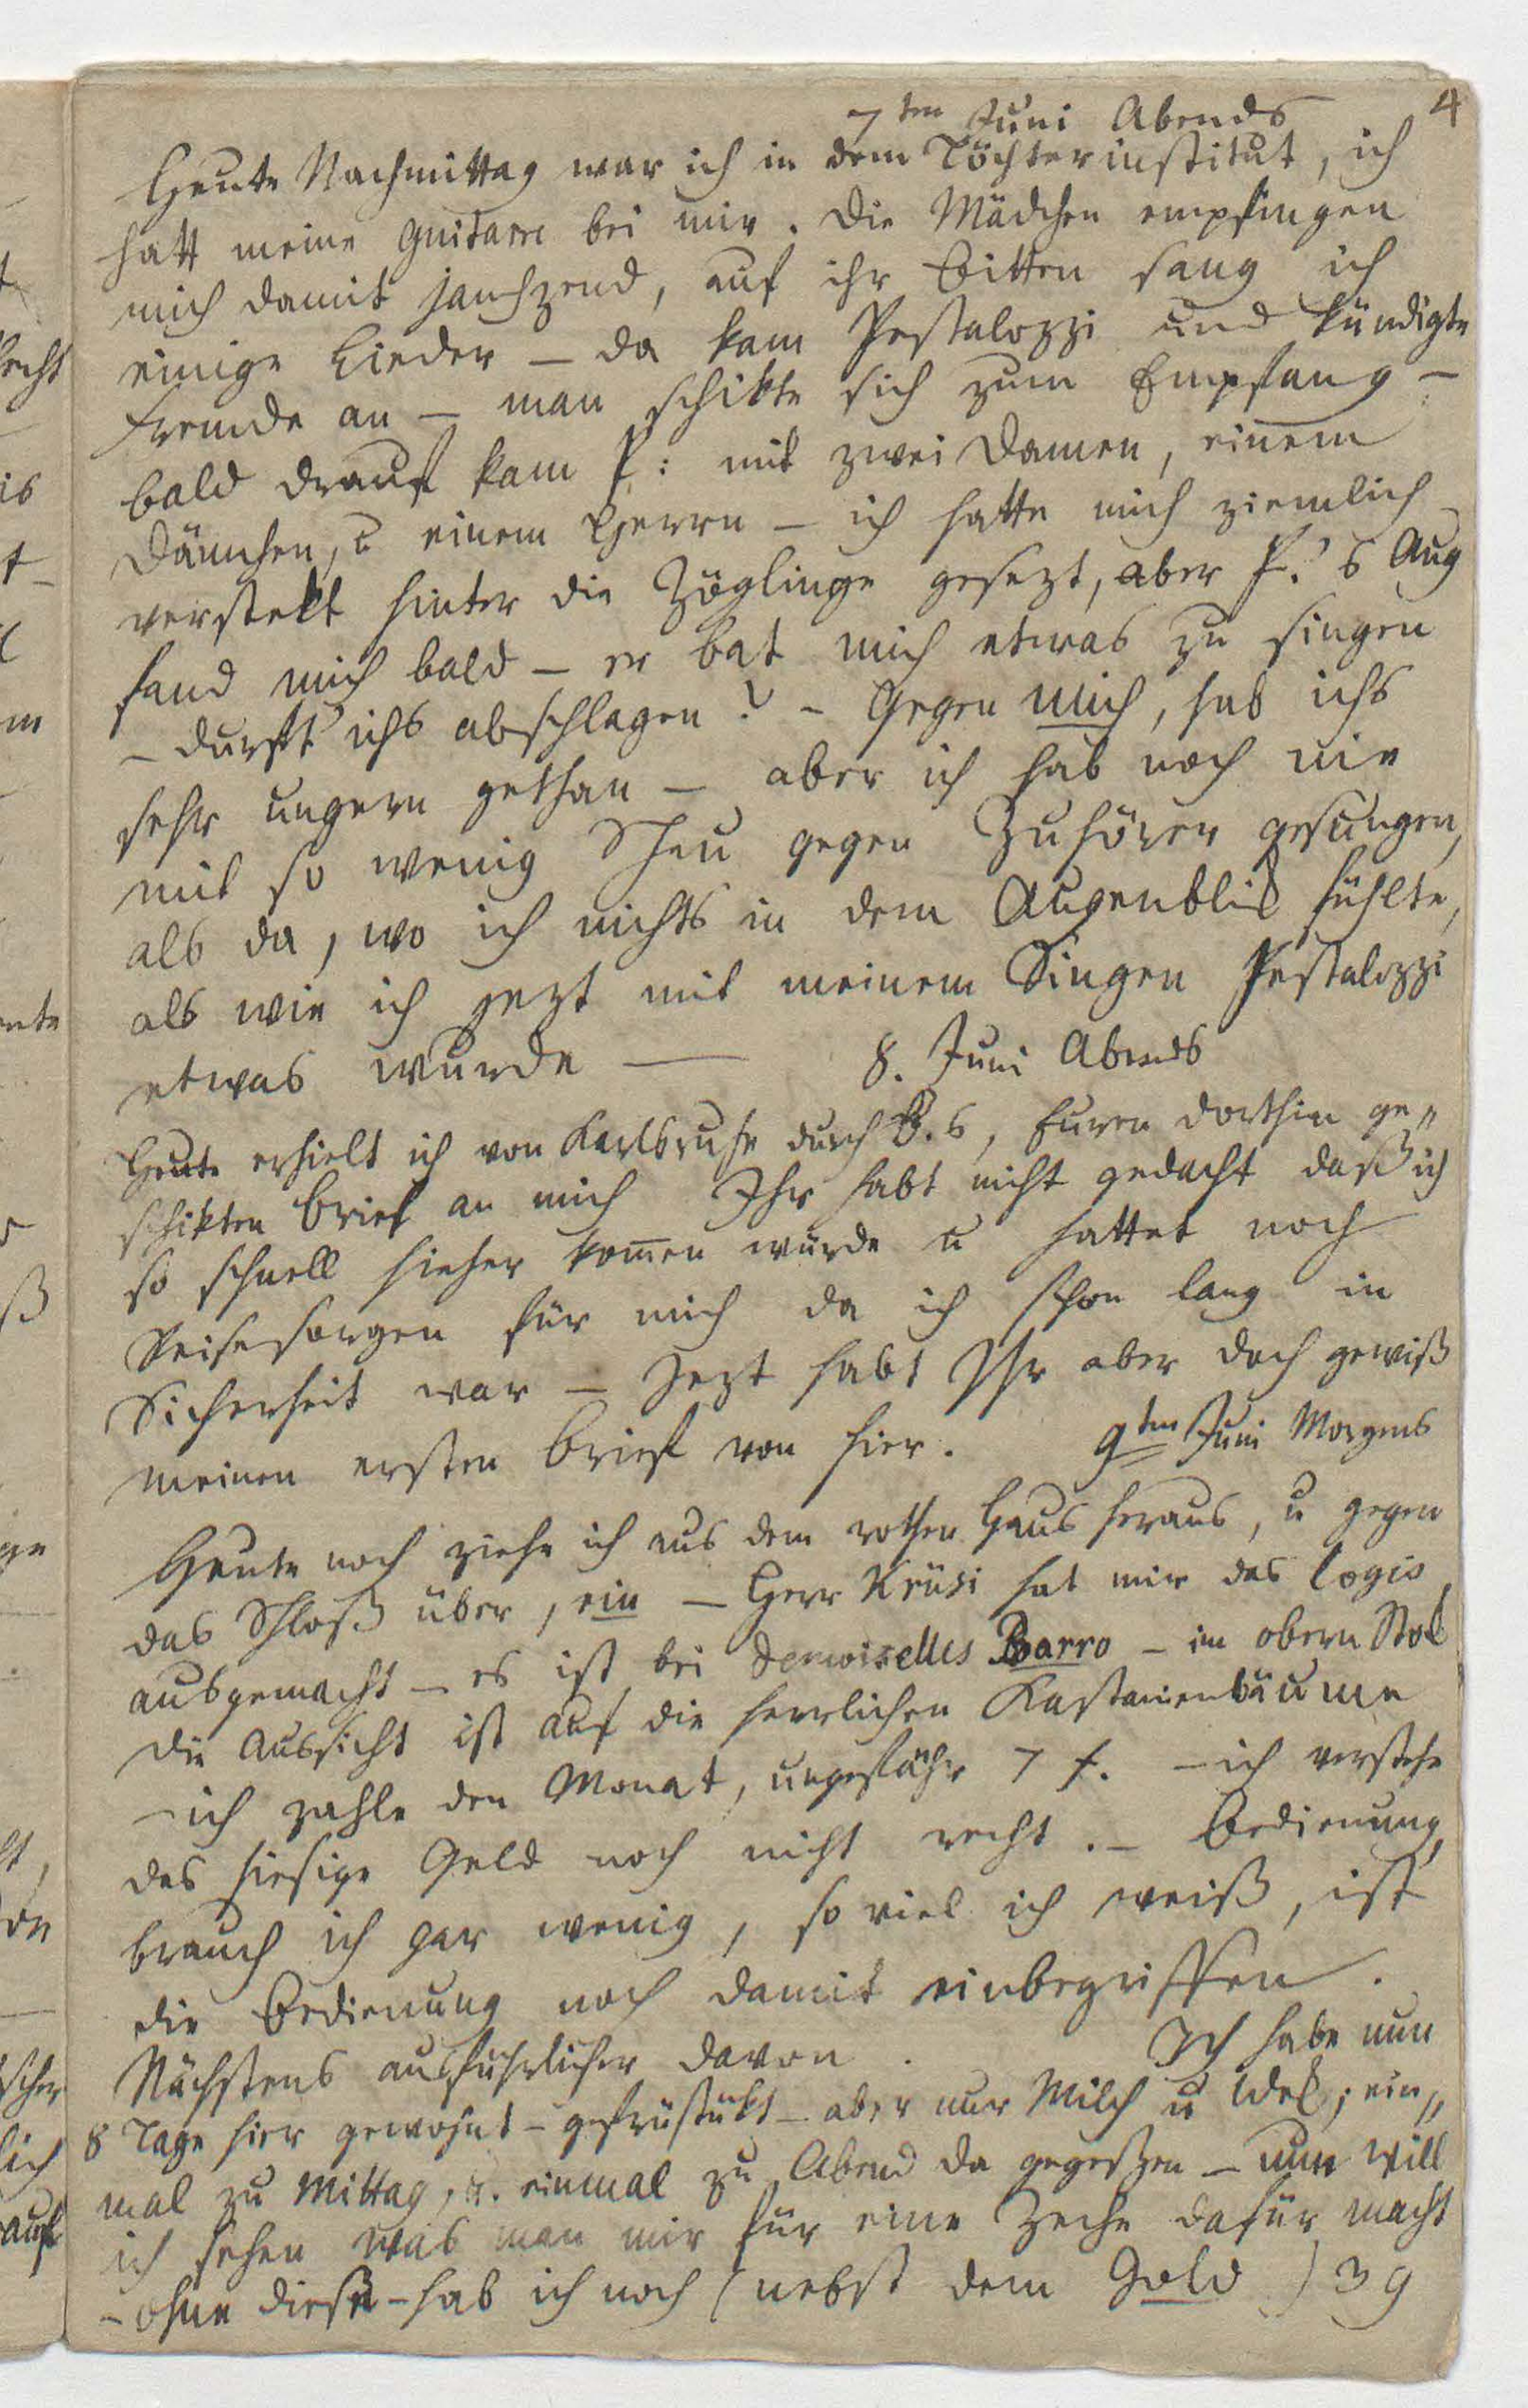 4
7ten Juni Abends
Heute Nachmittag war ich in dem Töchterinstitut, ich
hatt meine Guitarre bei mir. Die Mädchen empfingen
mich damit jauchzend, auf ihr Bitten sang ich
einige Lieder – da kam Pestalozzi und kündigte
Fremde an – man schikte sich zum Empfang –
bald drauf kam P: mit zwei Damen, einem
Dämchen, u einem Herrn – ich hatte mich ziemlich
verstekt hinter die Zöglinge gesezt, aber P.'s Aug
fand mich bald – er bat mich etwas zu singen
– durft ichs abschlagen? – Gegen mich, hab ichs
sehr ungern gethan – aber ich hab noch nie
mit so wenig Scheu gegen Zuhörer gesungen,
als da, wo ich nichts in dem Augenblik fühlte,
als wie ich jezt mit meinem Singen Pestalozzi
etwas wurde —
8. Juni Abends
Heute erhielt ich von Karlsruhe durch B.s, Euren dorthin ge„
schikten Brief an mich Ihr habt nicht gedacht daß ich
so schnell hieher kom̄en würde u hattet noch
Reisesorgen für mich da ich schon lang in
Sicherheit war – Jezt habt Ihr aber doch gewiß
meinen ersten Brief von hier.
9ten Juni Morgens
Heute noch ziehe ich aus dem rothen Haus heraus, u gegen
das Schloß über, ein – Herr Krüsi hat mir das Logis
ausgemacht – es ist bei Demoiselles Barro – im obern Stok
die Aussicht ist auf die herrlichen Kastanienbäume
– ich zahle den Monat, ungefähr 7 f. – ich verstehe
das hiesige Geld noch nicht recht. – Bedienung,
brauch ich gar wenig, so viel ich weiß, ist
die Bedienung noch damit einbegriffen.
Nächstens ausführlicher davon.
Ich habe nun
8 Tage hier gewohnt – gefrüstükt – aber nur Milch u Wek; ein„
mal zu Mittag, u. einmal zu Abend da gegeßen – nun will
ich sehen was man mir für eine Zeche dafür macht
– ohne diese – hab ich noch (nebst dem Gold) 39